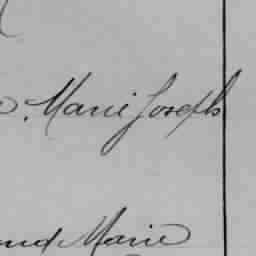 Marie Joseph
ond Marie